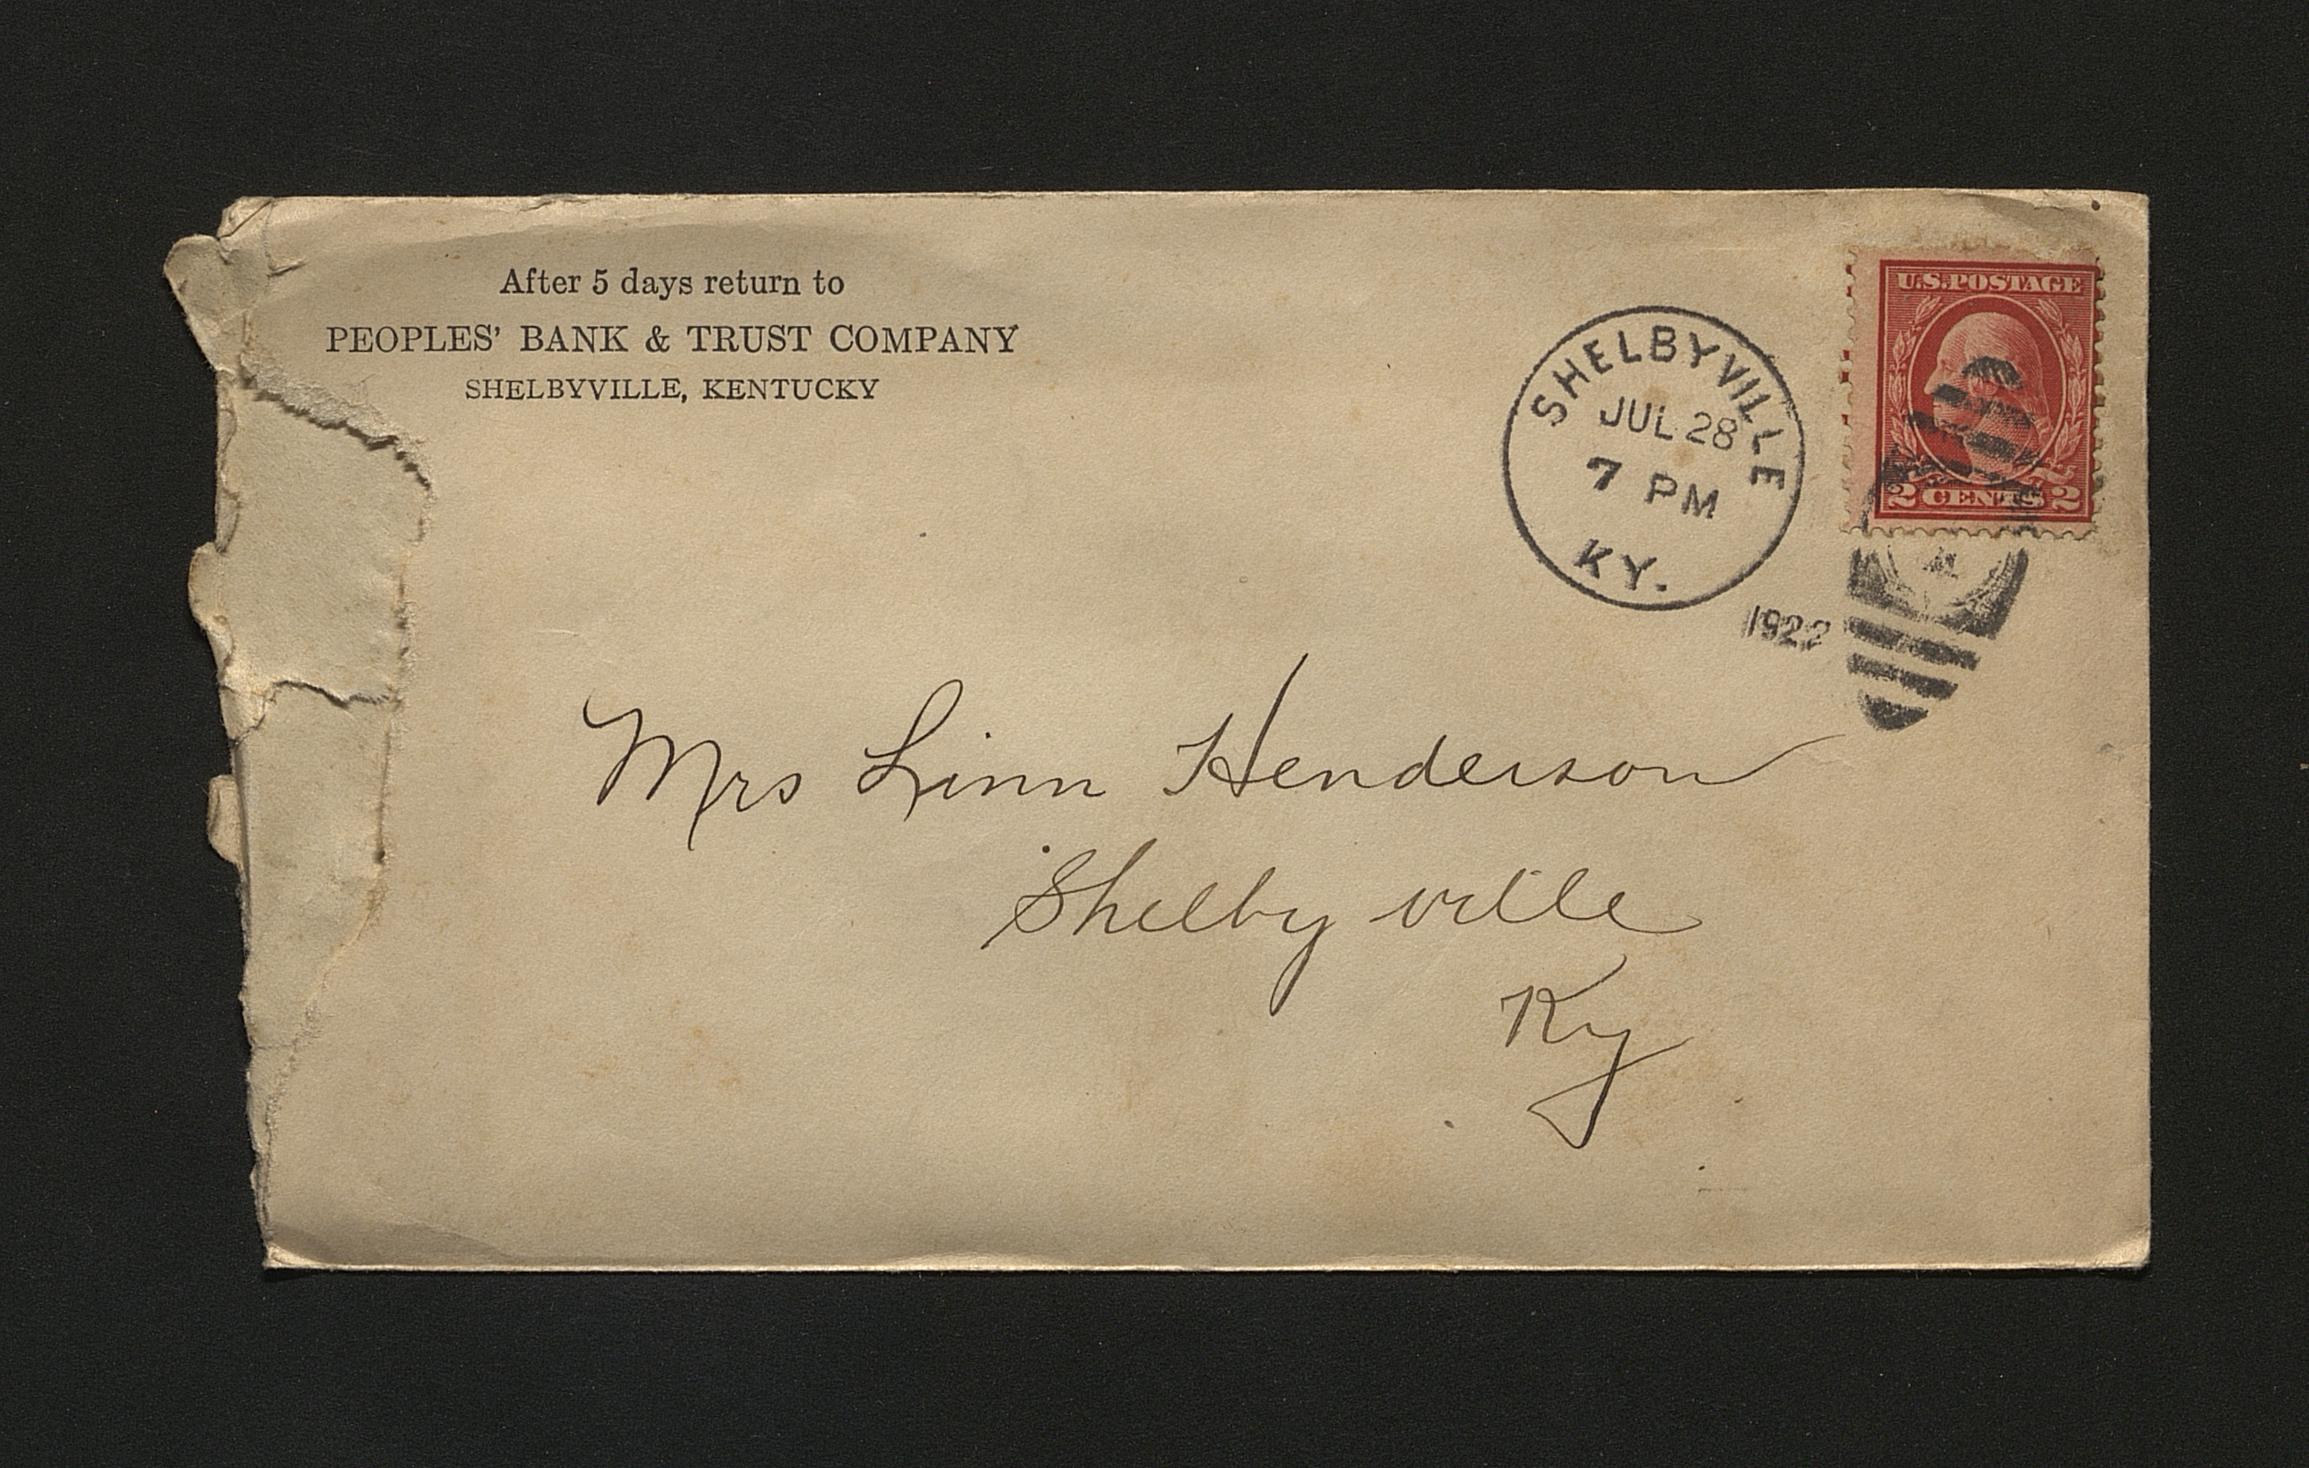 After 5 days return to
PEOPLES' BANK & TRUST COMPANY
SHELBYVILLE, KENTUCKY
SHELBYVILLE
JUL 28
7 PM
KY.
1922
U.S. POSTAGE
2 CENTS 2
Mrs Linn Henderson
Shelbyville
Ky